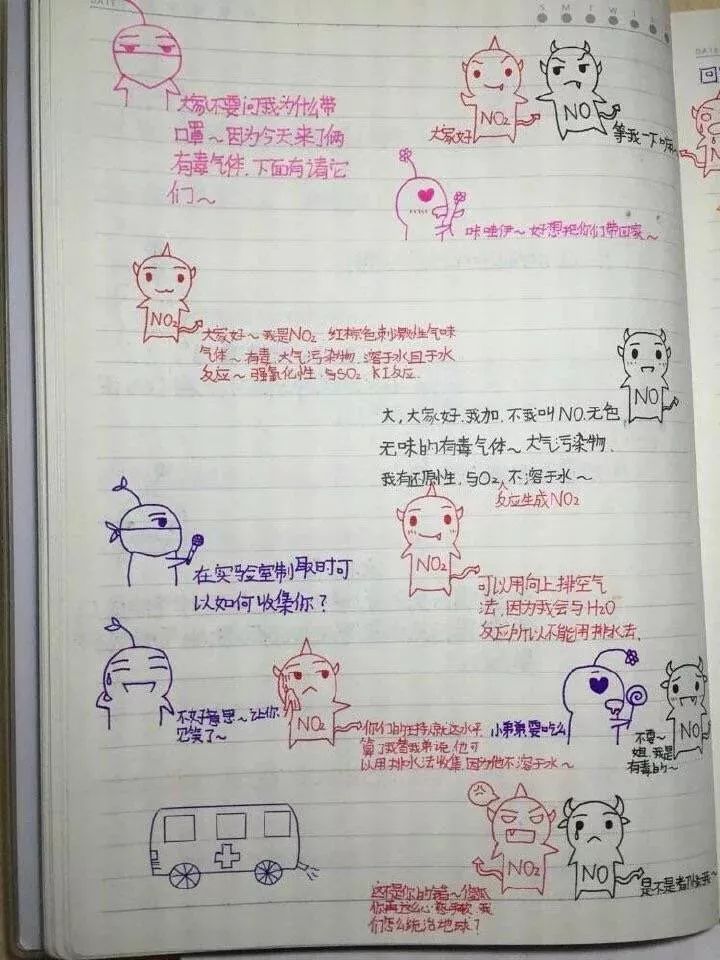 DATE
S M T W T F S
DATE
大家不要问我为什么带
口罩～因为今天来了俩
有毒气体.下面有请它
们～
NO₂
NO
大家好
等我一下
咔哇伊～好想把你们带回家～
NO₂
大家好～我是NO₂.红棕色刺激性气味
气体～有毒.大气污染物.溶于水且于水
反应～强氧化性.与SO₂.KI反应.
NO
大,大家好.我加.不我叫NO.无色
无味的有毒气体～大气污染物.
我有还原性.与O₂反应生成NO₂,不溶于水～
在实验室制取时可
以如何收集你?
NO₂
可以用向上排空气
法,因为我会与H₂O
反应所以不能用排水法.
不好意思～让你
见笑了～
NO₂
你们的主持人就这水平.
算了我替我弟说.他可
以用排水法收集.因为他不溶于水～
小弟弟要吃么
NO
不要～
姐.我是
有毒的～
NO₂
NO
这不是你的错～傻瓜
你再这么心慈手软.我
们怎么统治地球?
是不是